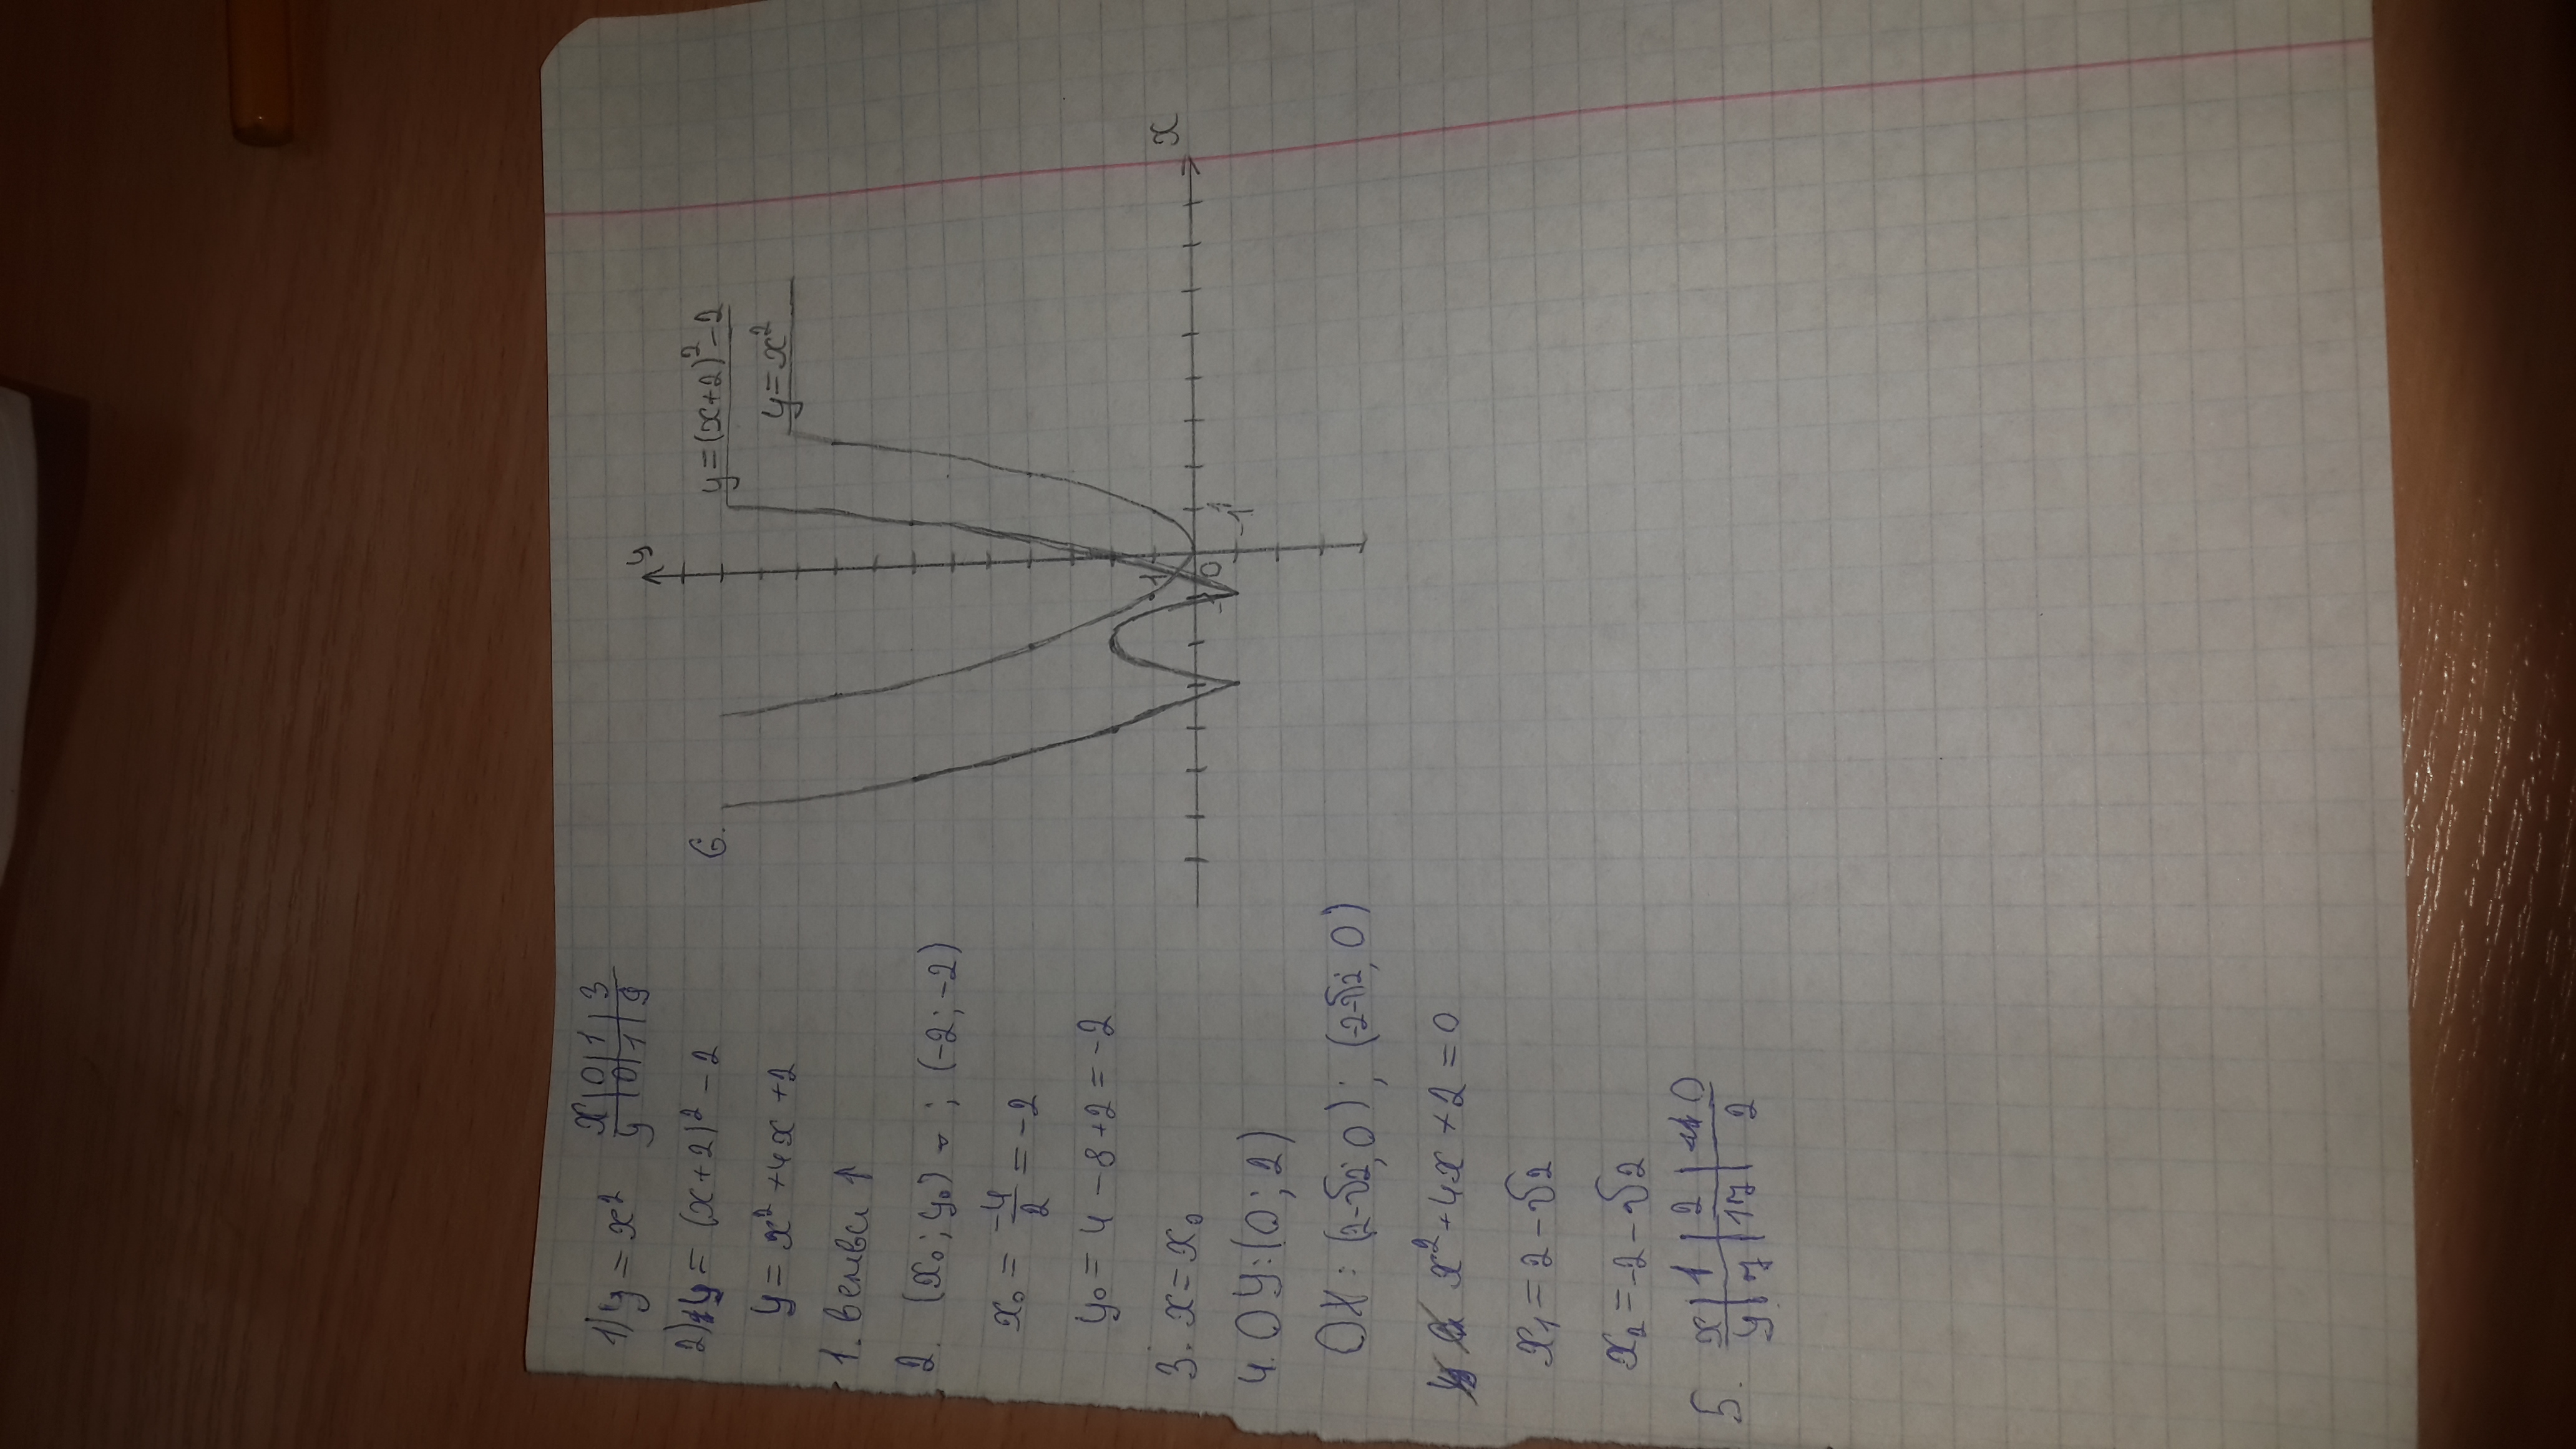 1) y = x² x | 0 | 1 | 3
y | 0 | 1 | 9
2) y = (x+2)² - 2
y = x² + 4x + 2
1. ветви ↑
2. (x₀; y₀) - ; (-2; -2)
x₀ = -4/2 = -2
y₀ = 4 - 8 + 2 = -2
3. x = x₀
4. OY: (0; 2)
OX: (2-√2; 0); (-2-√2; 0)
x² + 4x + 2 = 0
x₁ = 2 - √2
x₂ = -2 - √2
5. x | 1 | 2 | 0
y | 7 | 17 | 2
6.
y
y = (x+2)² - 2
y = x²
x
1
0
1
-1